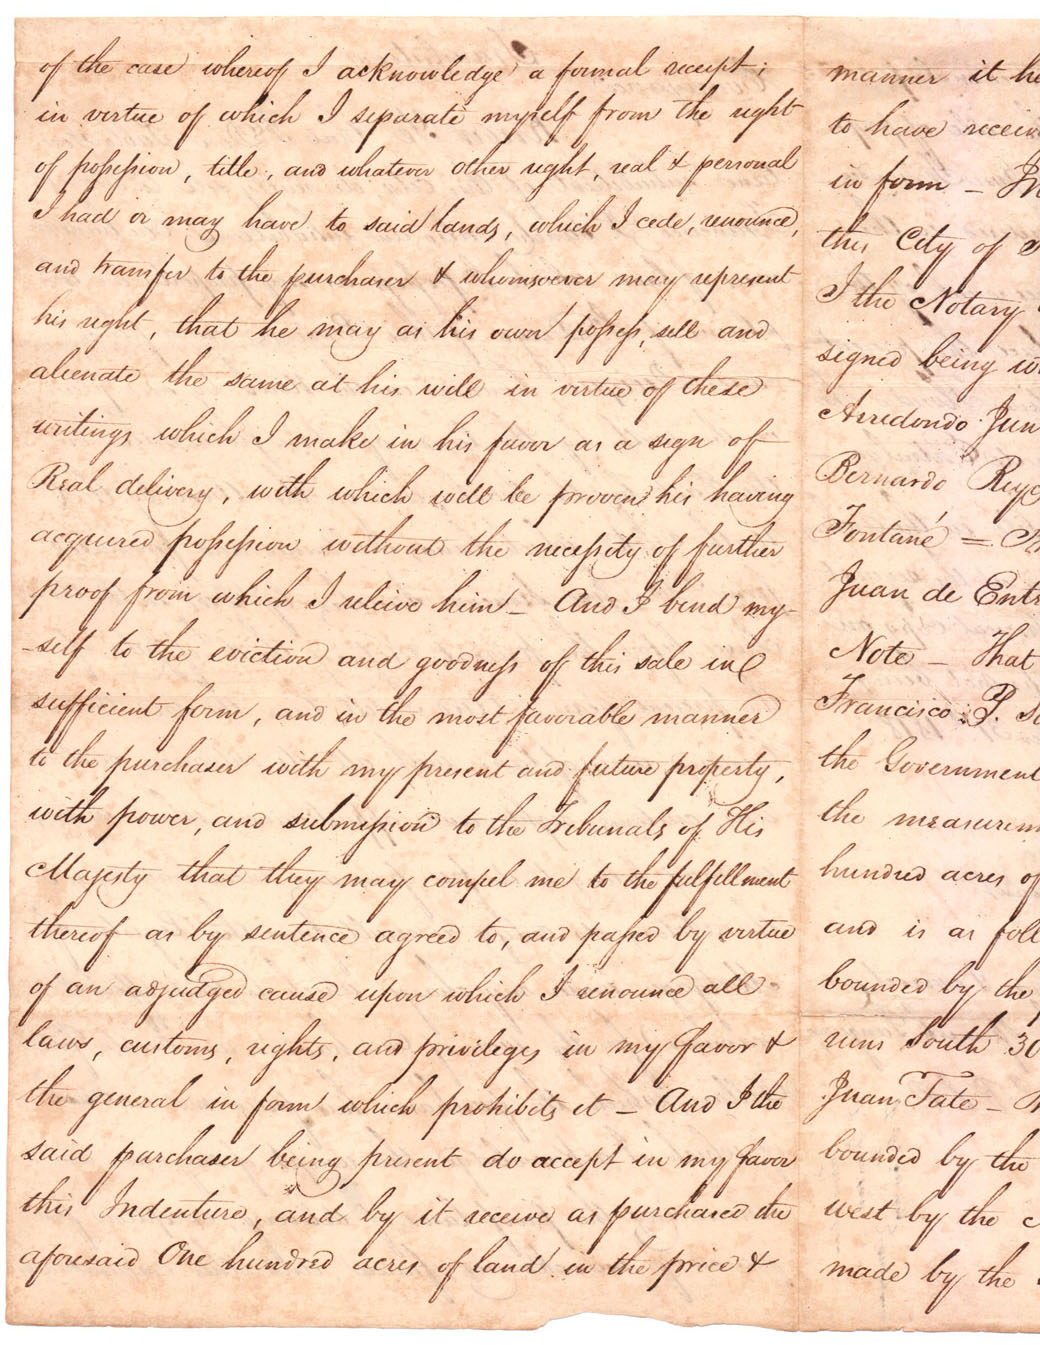 of the case whereof I acknowledge a formal receipt;
in virtue of which I separate myself from the right
of possession, title, and whatever other right, real & personal
I had or may have to said lands, which I cede, renounce,
and transfer to the purchaser & whomsoever may represent
his right, that he may as his own possess, sell and
alienate the same at his will in virtue of these
writings which I make in his favor as a sign of
Real delivery, with which will be proven his having
acquired possession without the necessity of further
proof from which I releive him – And I bind my-
-self to the eviction and goodness of this sale in
sufficient form, and in the most favorable manner
to the purchaser with my present and future property,
with power, and submission to the Tribunals of His
Majesty that they may compel me to the fulfillment
thereof as by sentence agreed to, and passed by virtue
of an adjudged cause upon which I renounce all
laws, customs, rights, and privileges in my favor &
the general in form which prohibits it – And I the
said purchaser being present do accept in my favor
this Indenture, and by it receive as purchased the
aforesaid One hundred acres of land in the price &
manner it
to have
in form –
this City of
I the Notary
signed being
Arredondo Jun
Bernardo
Fontané =
Juan de
Note – That
Francisco P.
the Government
the
hundred acres of
and is as
bounded by the
runs South 30
Juan Tate –
bounded by the
west by the
made by the